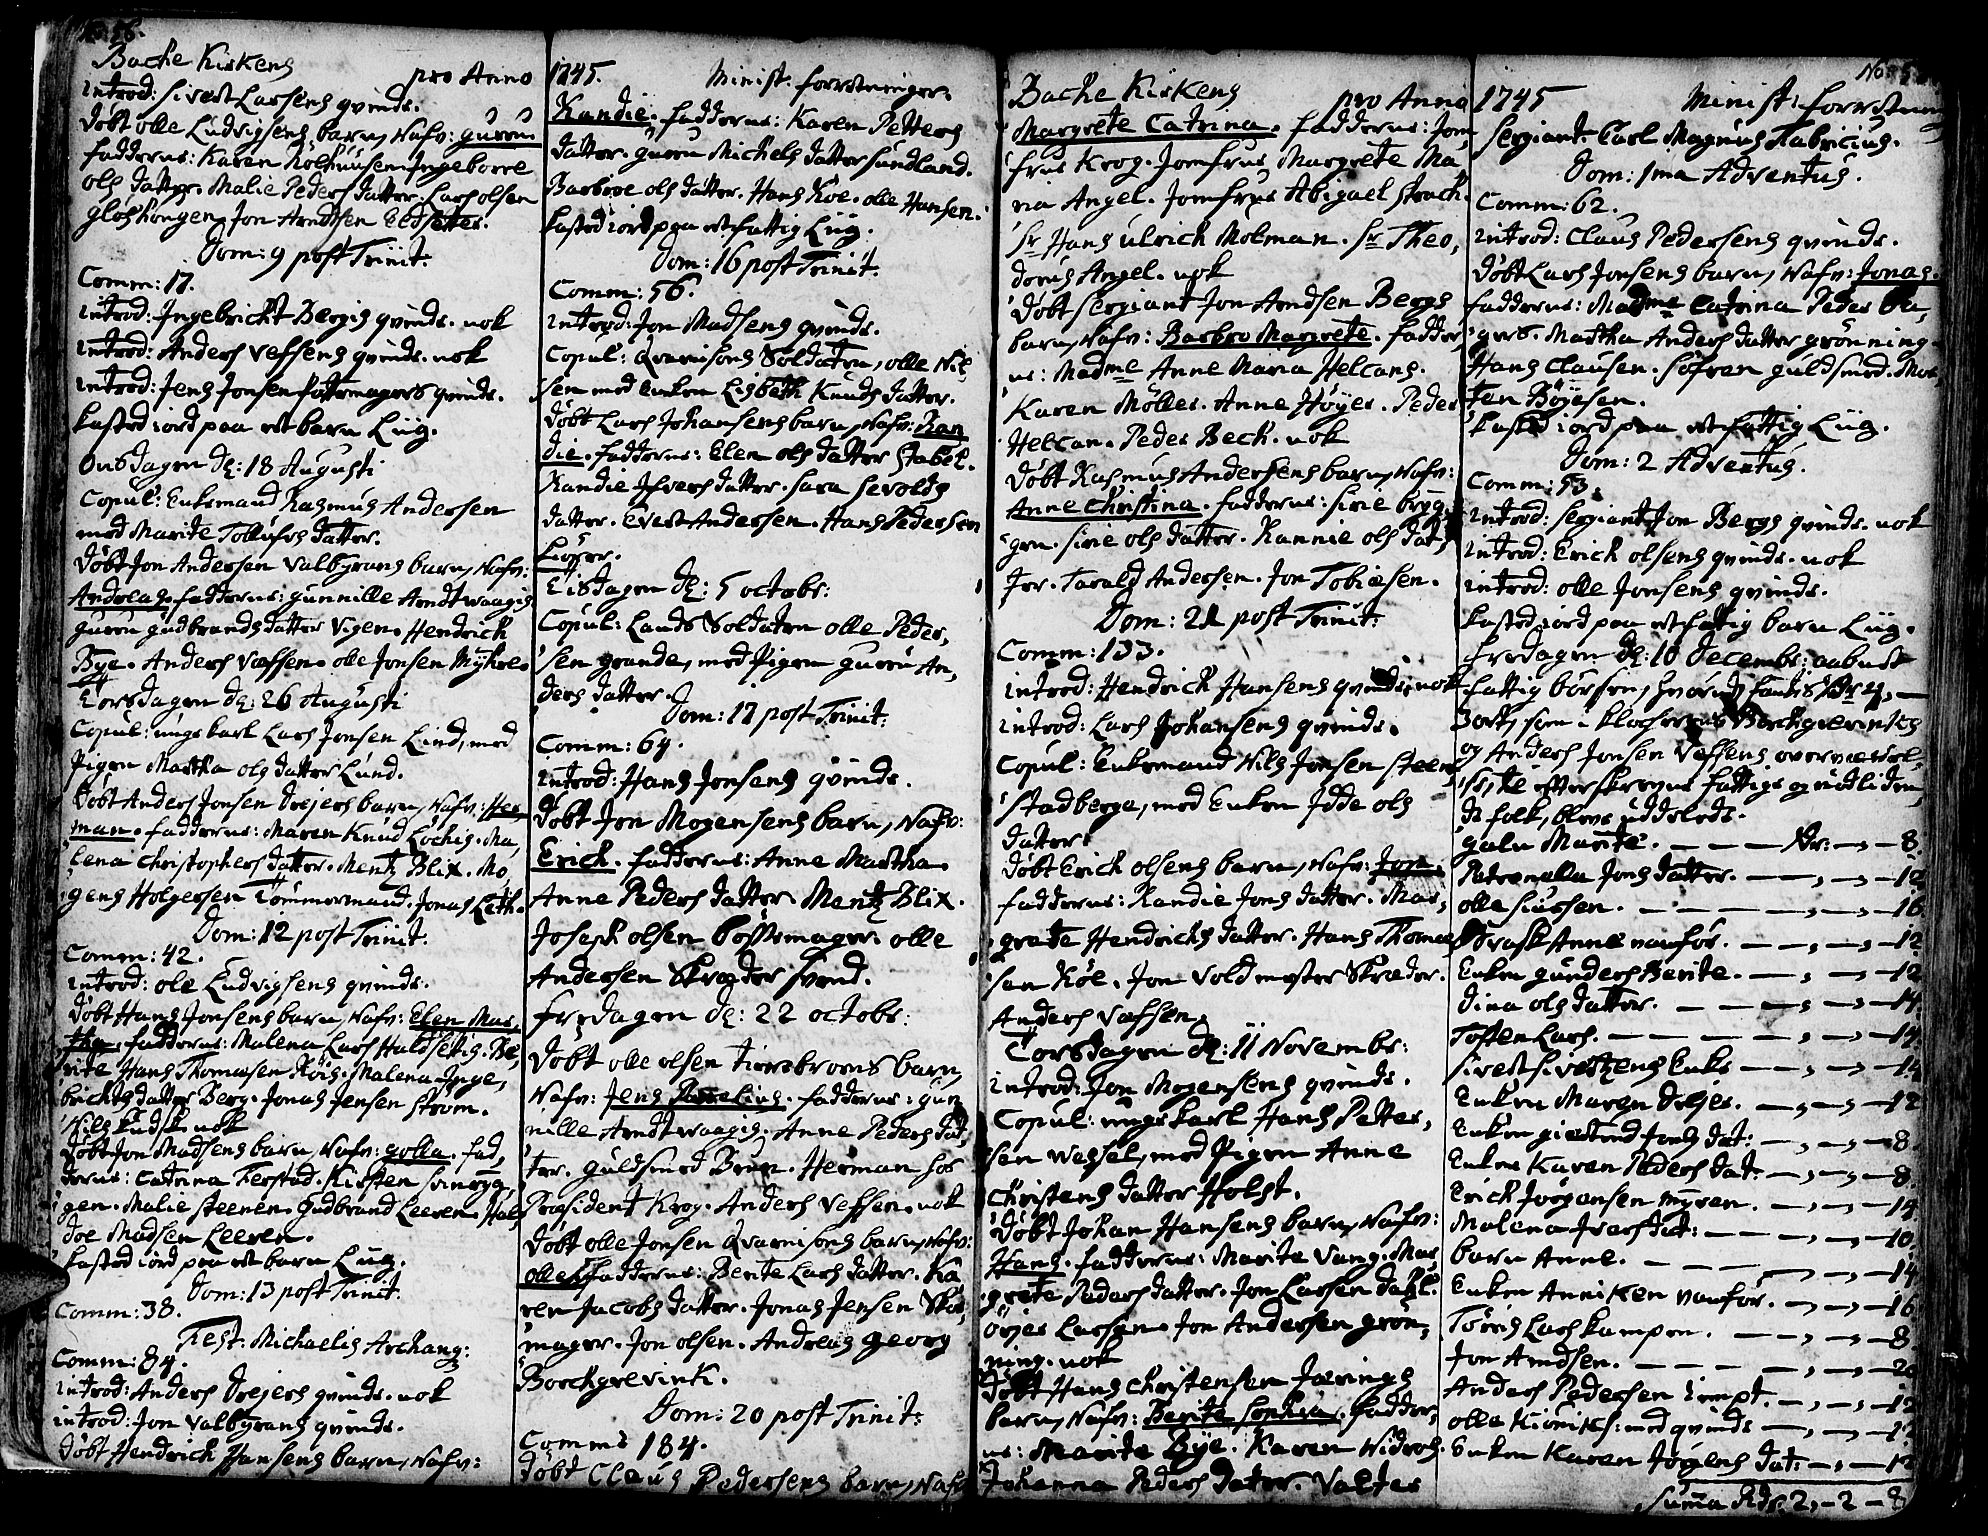 Bache Kirkens
pro Anno
introd: Sivert Larsens qvinde.
døbt olle Ludvigsens barn, Nafn: guren
fadderne: Karen Rolhuusen Ingeborre
ols datter. Malie Peders datter. Lars olsen
Gloshougen, Jon Arndtsen Eldsetter.
Dom: 9 post Trinit:
Comm: 17.
introd: Ingebricht Bergis qvinde. nok
introd: Anders Vessens qvinde. nok
introd: Jens Jonsen Pottemagers qvinde.
kasted iord paa et barn Liig.
Onsdagen d: 18 Augusti
Copul: Enkemand Rasmus Andersen
med Marite Tollufs datter.
døbt Jon Andersen Valbyrans barn, Nafn:
Andreas. fadderne: gunnille Arndt waagis
guren gudbrands datter Vigen. Hendrich
Bye. Anders Vessen. olle Jonsen Myhre.
Torsdagen d: 26 Augusti
Copul: ungkarl Lars Jonsen Lind, med
Pigen Martha ols datter Lund.
døbt Anders Jonsen Drejers barn, Nafn: Her
man. fadderne: Maren Knud Lochis. Ma,
lena Christophers datter. Mentz Blix. Mo,
gens Holgersen Tømmermand. Jonas Leth.
Dom: 12 post Trinit:
Comm: 42.
introd: ole Ludvigsens qvinde.
døbt Hans Jonsens barn, Nafn: Elen Mar,
tha. fadderne: Malena Lars Huldsettis. Be,
rite Hans Thomæsen Röis. Malena Inge,
brichts datter Berg. Jonas Jensen Strøm.
Nils Kudsk. nok
døbt Jon Madsens barn, Nafn: golla. fad,
derne: Catrina Ferstad. Kirsten
gen. Malie Steenen. Gudbrand Leeren. Hal,
doe Madsen Leeren.
kasted iord paa et barn Liig.
Dom: 13 post Trinit.
Comm: 38.
Fest: Michaelis Archang:
Comm: 84.
introd: Anders Drejers qvinde. nok
introd: Jon Valbyrans qvinde.
døbt Hendrich Hansens barn, Nafn:
1745. Minist. forretninger.
Randie. fadderne: Karen Petters
datter. guren Michels datter Sundland.
Barbroe ols datter. Hans Roe. olle Hansen.
kasted iord paa et fattig Liig.
Dom: 16 post Trinit:
Comm: 56.
introd: Jon Madsens qvinde.
Copul: Qvarnisons Soldaten, olle Nil,
sen med enken Lisbeth Knuds datter.
døbt Lars Johansens barn, Nafn: Ran
die. fadderne: Elen ols datter Stabel.
Randie Ifvers datter. Sara Sevolds
datter. Evert Andersen. Hans Pedersen
Løxer.
Tisdagen d: 5 octobr:
Copul: Lands Soldaten olle Peder,
sen grande, med Pigen guren An,
ders datter.
Dom: 17 post Trinit:
Comm: 64.
introd: Hans Jonsens qvinde.
døbt Jon Mogensens barn, Nafn:
Erich. fadderne: Anne Martha.
Anne Peders datter. Mentz Blix.
Joseph olsen Bøssemager. olle
Andersen Skræder Svend.
fredagen d: 22 octobr:
døbt olle olsen Tierebroens barn,
Nafn: Jens. fadderne: gun
nille Arndt waagis. Anne Peders dat,
ter. Guldsmed Brun. Herman hos
Præsident Krog. Anders Vessen. nok
døbt olle Jonsen Qvarnisons barn, Nafn:
olle. fadderne: Berte Lars datter. Ka
ren Jacobs datter. Jonas Jensen Skoe
mager. Jon olsen. Andreas georg
Borchgrevink.
Dom: 20 post Trinit:
Comm: 184.
døbt Claus Pedersens barn, Nafn
Bache Kirkens pro Anno
Margrete Catrina. fadderne: Jom,
frue Krog. Jomfrue Margrete Ma
ria Angel. Jomfrue Abigael Storch.
Sr Hans Ulrich Molman. Sr Theo,
dorus Angel. nok
døbt Sergiant Jon Arndsen Bergs
barn, Nafn: Barbro Margrete. fadder,
ne: Madme Anne Maria Helcans.
Karen Møller. Anne Høyer. Peder
Helcan. Peder Beck. nok
døbt Rasmus Andersens barn, Nafn:
Anne Christina. fadderne: Sirie bryg,
gen. Sirie ols datter. Rannie ols dat,
ter. Tarald Andersen. Jon Tobiesen.
Dom: 21 post Trinit:
Comm: 133.
introd: Hendrich Hansens qvinde. nok
introd: Lars Johansens qvinde.
Copul: Enkemand Nils Jonsen Steen,
Stadberge, med Enken Idde ols
datter.
døbt Erich olsens barn, Nafn: Jon.
fadderne: Randie Jons datter. Mar,
grete Hendrichs datter. Hans Thomæ,
sen Röe. Jon Voldmester Skræder.
Anders Vessen.
Torsdagen d: 11 Novembr:
introd: Jon Mogensens qvinde.
Copul: ungkarl Hans Petter,
sen Wessel, med Pigen Anne
Christens datter Holst.
døbt Johan Hansens barn, Nafn:
Hans. fadderne: Marite Vang. Mar
grete Peders datter. Jon Larsen dahl.
Örjer Larsen. Jon Andersen grøn,
ning. nok
døbt Hans Christensen Iærings
barn, Nafn: Berite Sophia. fadder,
ne: Marite Bye. Karen Hidroes.
Johanna Peders datter. Valter
1745 Minist: forretning
Sergiant Carl Magnus Fabricius.
Dom: 1ma Adventus.
Comm: 62.
introd: Claus Pedersens qvinde.
døbt Lars Jonsens barn, Nafn: Jonas.
fadderne: Madme Catrina Peder
gers. Martha Anders datter grønning.
Hans Clausen. Søfren guldsmed. Mor,
ten Böyesen.
kasted iord paa et fattig Liig.
Dom: 2 Adventus.
Comm: 53.
introd: Sergiant Jon Bergs qvinde. nok
introd: Erich olsens qvinde. nok
introd: olle Jonsens qvinde.
kasted iord paa et fattig barn Liig.
fredagen d: 10 Decembr: aabnet
fattig bøssen, hvorudj fantes
som i klocherens Borchgrevincks
og Anders Jonsen Vessens overværel,
se, til efterskrevne fattige og nødliden,
de folk, bleve uddeelede.
galn Marite. — — — Nr: — , — 8
Petronella Jons datter. — — , — , — 12
olle Siursen. — — — , — , — 16
Trask Anne vanför. — — , — , — 12
Enken gunders Berite. — — , — , — 12
Dina ols datter. — — — , — , — 14
Toften Lars. — — — , — , — 14
Sivert Sivertzens Enke — — , — , — 14
Enken Maren Drejer. — — , — , — 12
Enken giertrud Jons dat: — , — , — 8
Enken Karen Peders dat: — , — , — 8
Erich Jörgensen myren. — — , — , — 14
Malena Ivers dat: — — , — , — 10
barn Anne. — — — , — , — 14
Enken Anniken vanför. — , — , — 16
Törris Lars kampen. — — , — , — 8
Jon Arndsen. — — — , — , — 20
Anders Pedersen Limpt. — , — , — 12
olle med qvinde — , — , — 12
Enken Karen Jörgens dat: — , — , — 12
Summa Rdr. 2, — 2 — 8